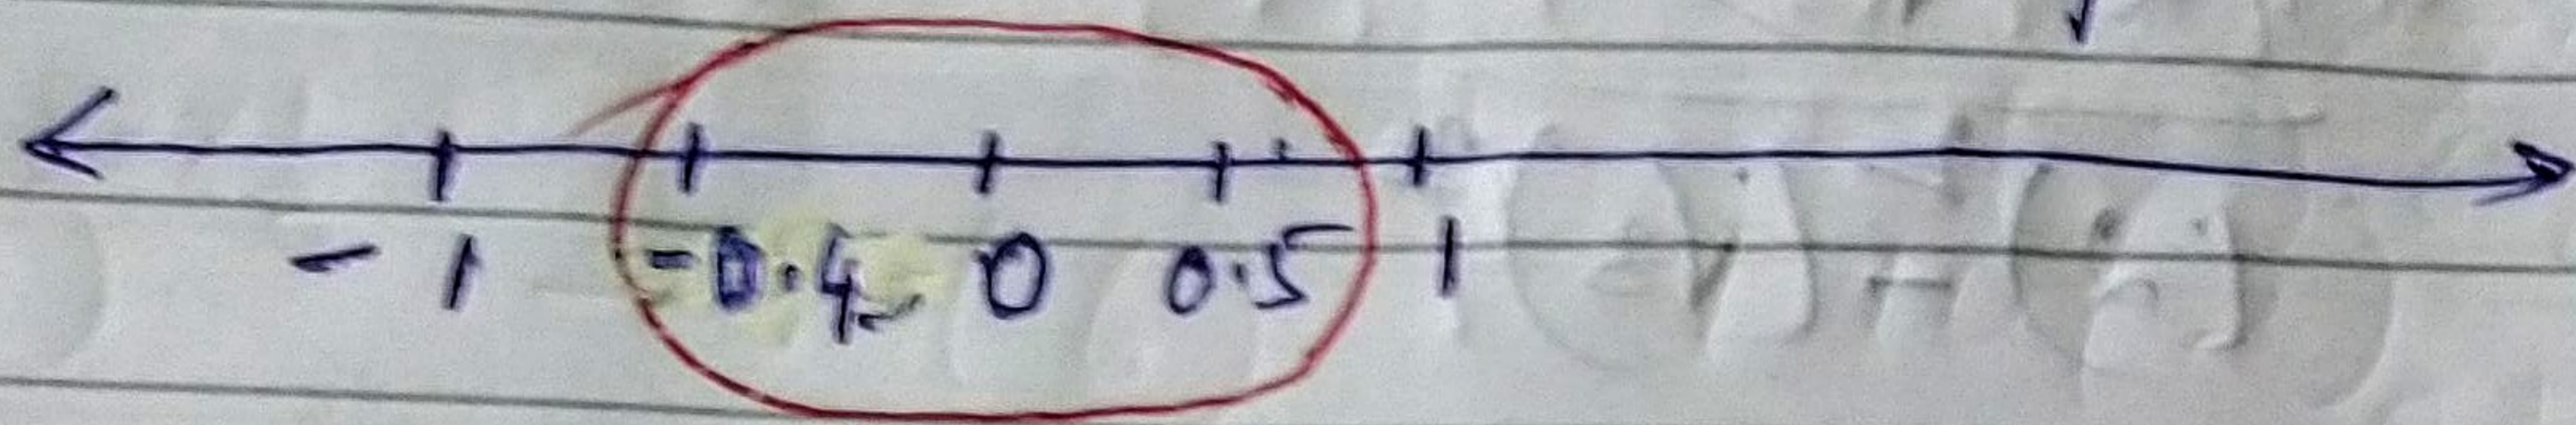 -1 -0.4 0 0.5 1